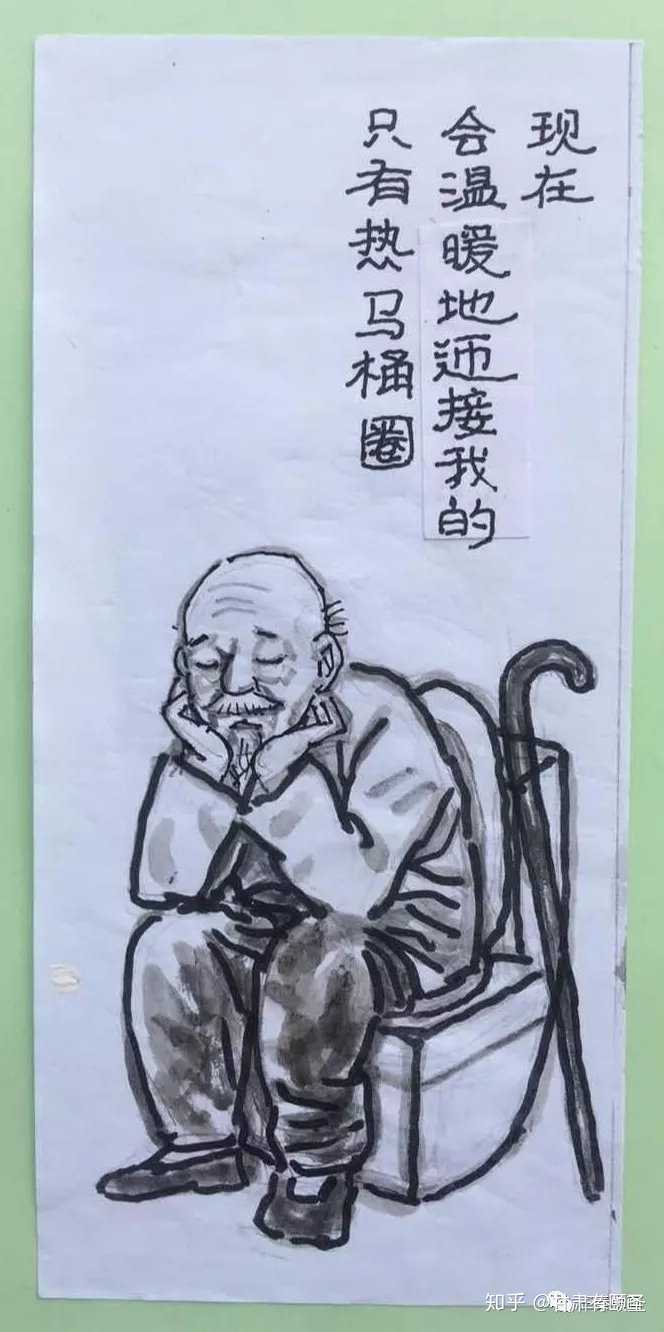 现在
会温暖地迎接我的
只有热马桶圈
知乎